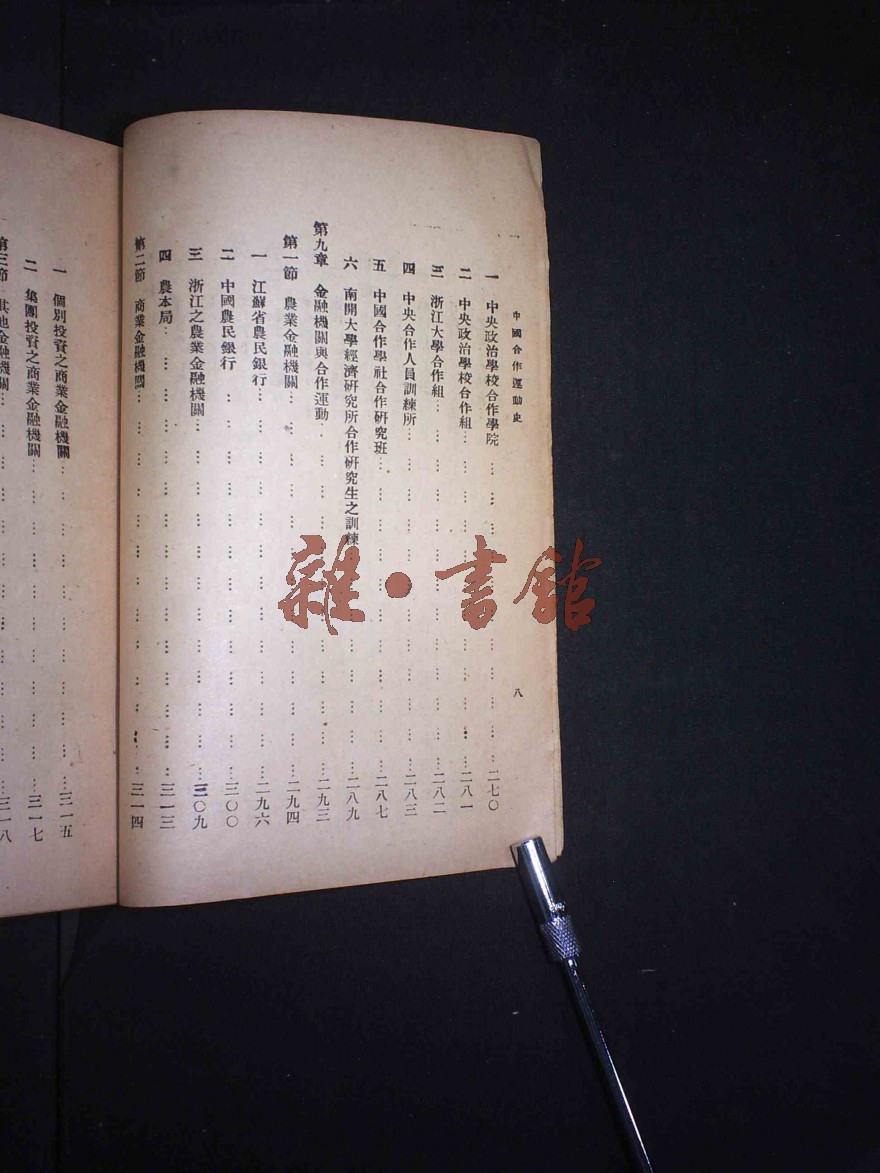 中國合作運動史
八
一 中央政治學校合作學院…………二七〇
二 中央政治學校合作組…………二八一
三 浙江大學合作組…………二八二
四 中央合作人員訓練所…………二八三
五 中國合作學社合作研究班…………二八七
六 南開大學經濟研究所合作研究生之訓練…………二八九
第九章 金融機關與合作運動…………二九三
第一節 農業金融機關…………二九四
一 江蘇省農民銀行…………二九六
二 中國農民銀行…………三〇〇
三 浙江之農業金融機關…………三〇九
四 農本局…………三一三
第二節 商業金融機關…………三一四
一 個別投資之商業金融機關…………三一五
二 集團投資之商業金融機關…………三一七
第三節 其他金融機關…………三一八
雜·書館